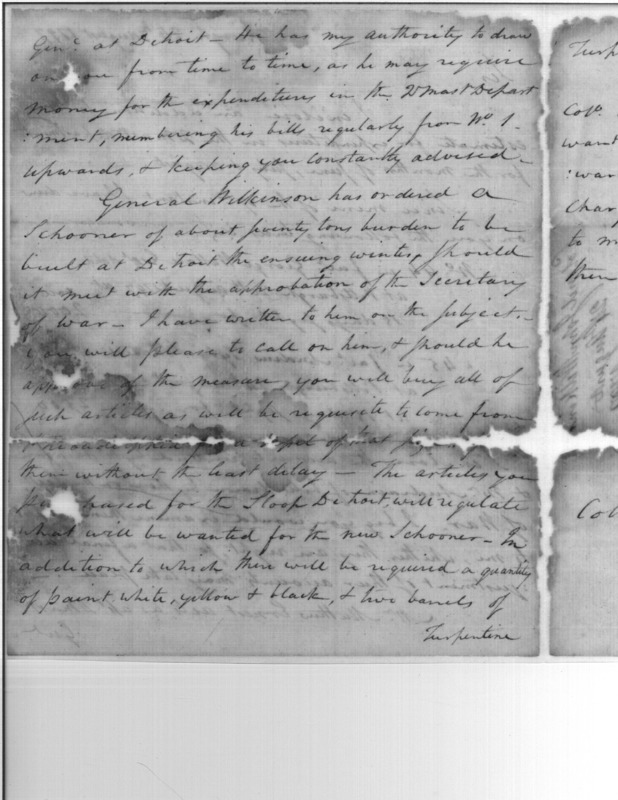 Genl. at Detroit - He has my authority to draw
on you from time to time, as he may require
money for the expenditures in the Qr Mast Depart
:ment, numbering his bills regularly from No. 1.
upwards, & keeping you constantly advised -
General Wilkinson has ordered a
Schooner of about seventy tons burden to be
built at Detroit the ensuing winter, should
it meet with the approbation of the Secretary
of War - I have written to him on the subject. -
You will please to call on him, & should he
approve of the measure, you will buy all of
such articles as will be requisite to come from
Philadelphia for a vessel of that
them without the least delay - The articles you
purchased for the Sloop Detroit, will regulate
what will be wanted for the new Schooner - In
addition to which there will be required a quantity
of paint, white, yellow & black, & two barrels of
Turpentine
want
:war
Char
to m
them